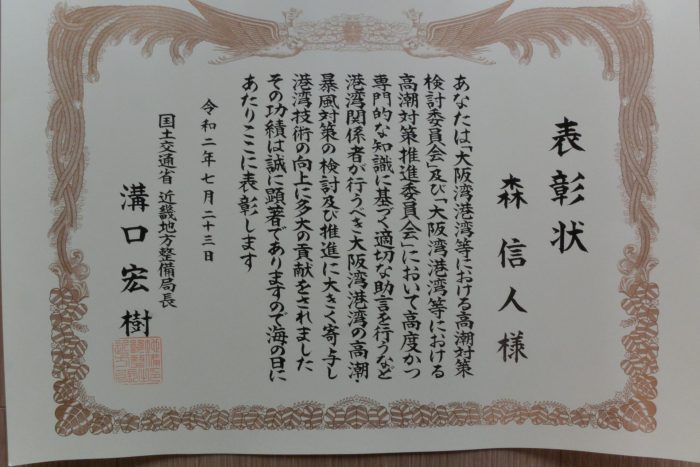 表彰状
森信人様
あなたは「大阪湾港湾等における高潮対策
検討委員会」及び「大阪湾港湾等における
高潮対策推進委員会」において高度かつ
専門的な知識に基づく適切な助言を行うなど
港湾関係者が行うべき大阪湾港湾の高潮・
暴風対策の検討及び推進に大きく寄与し
港湾技術の向上に多大の貢献をされました
その功績は誠に顕著でありますので海の日に
あたりここに表彰します
令和二年七月二十三日
国土交通省 近畿地方整備局長
溝口宏樹